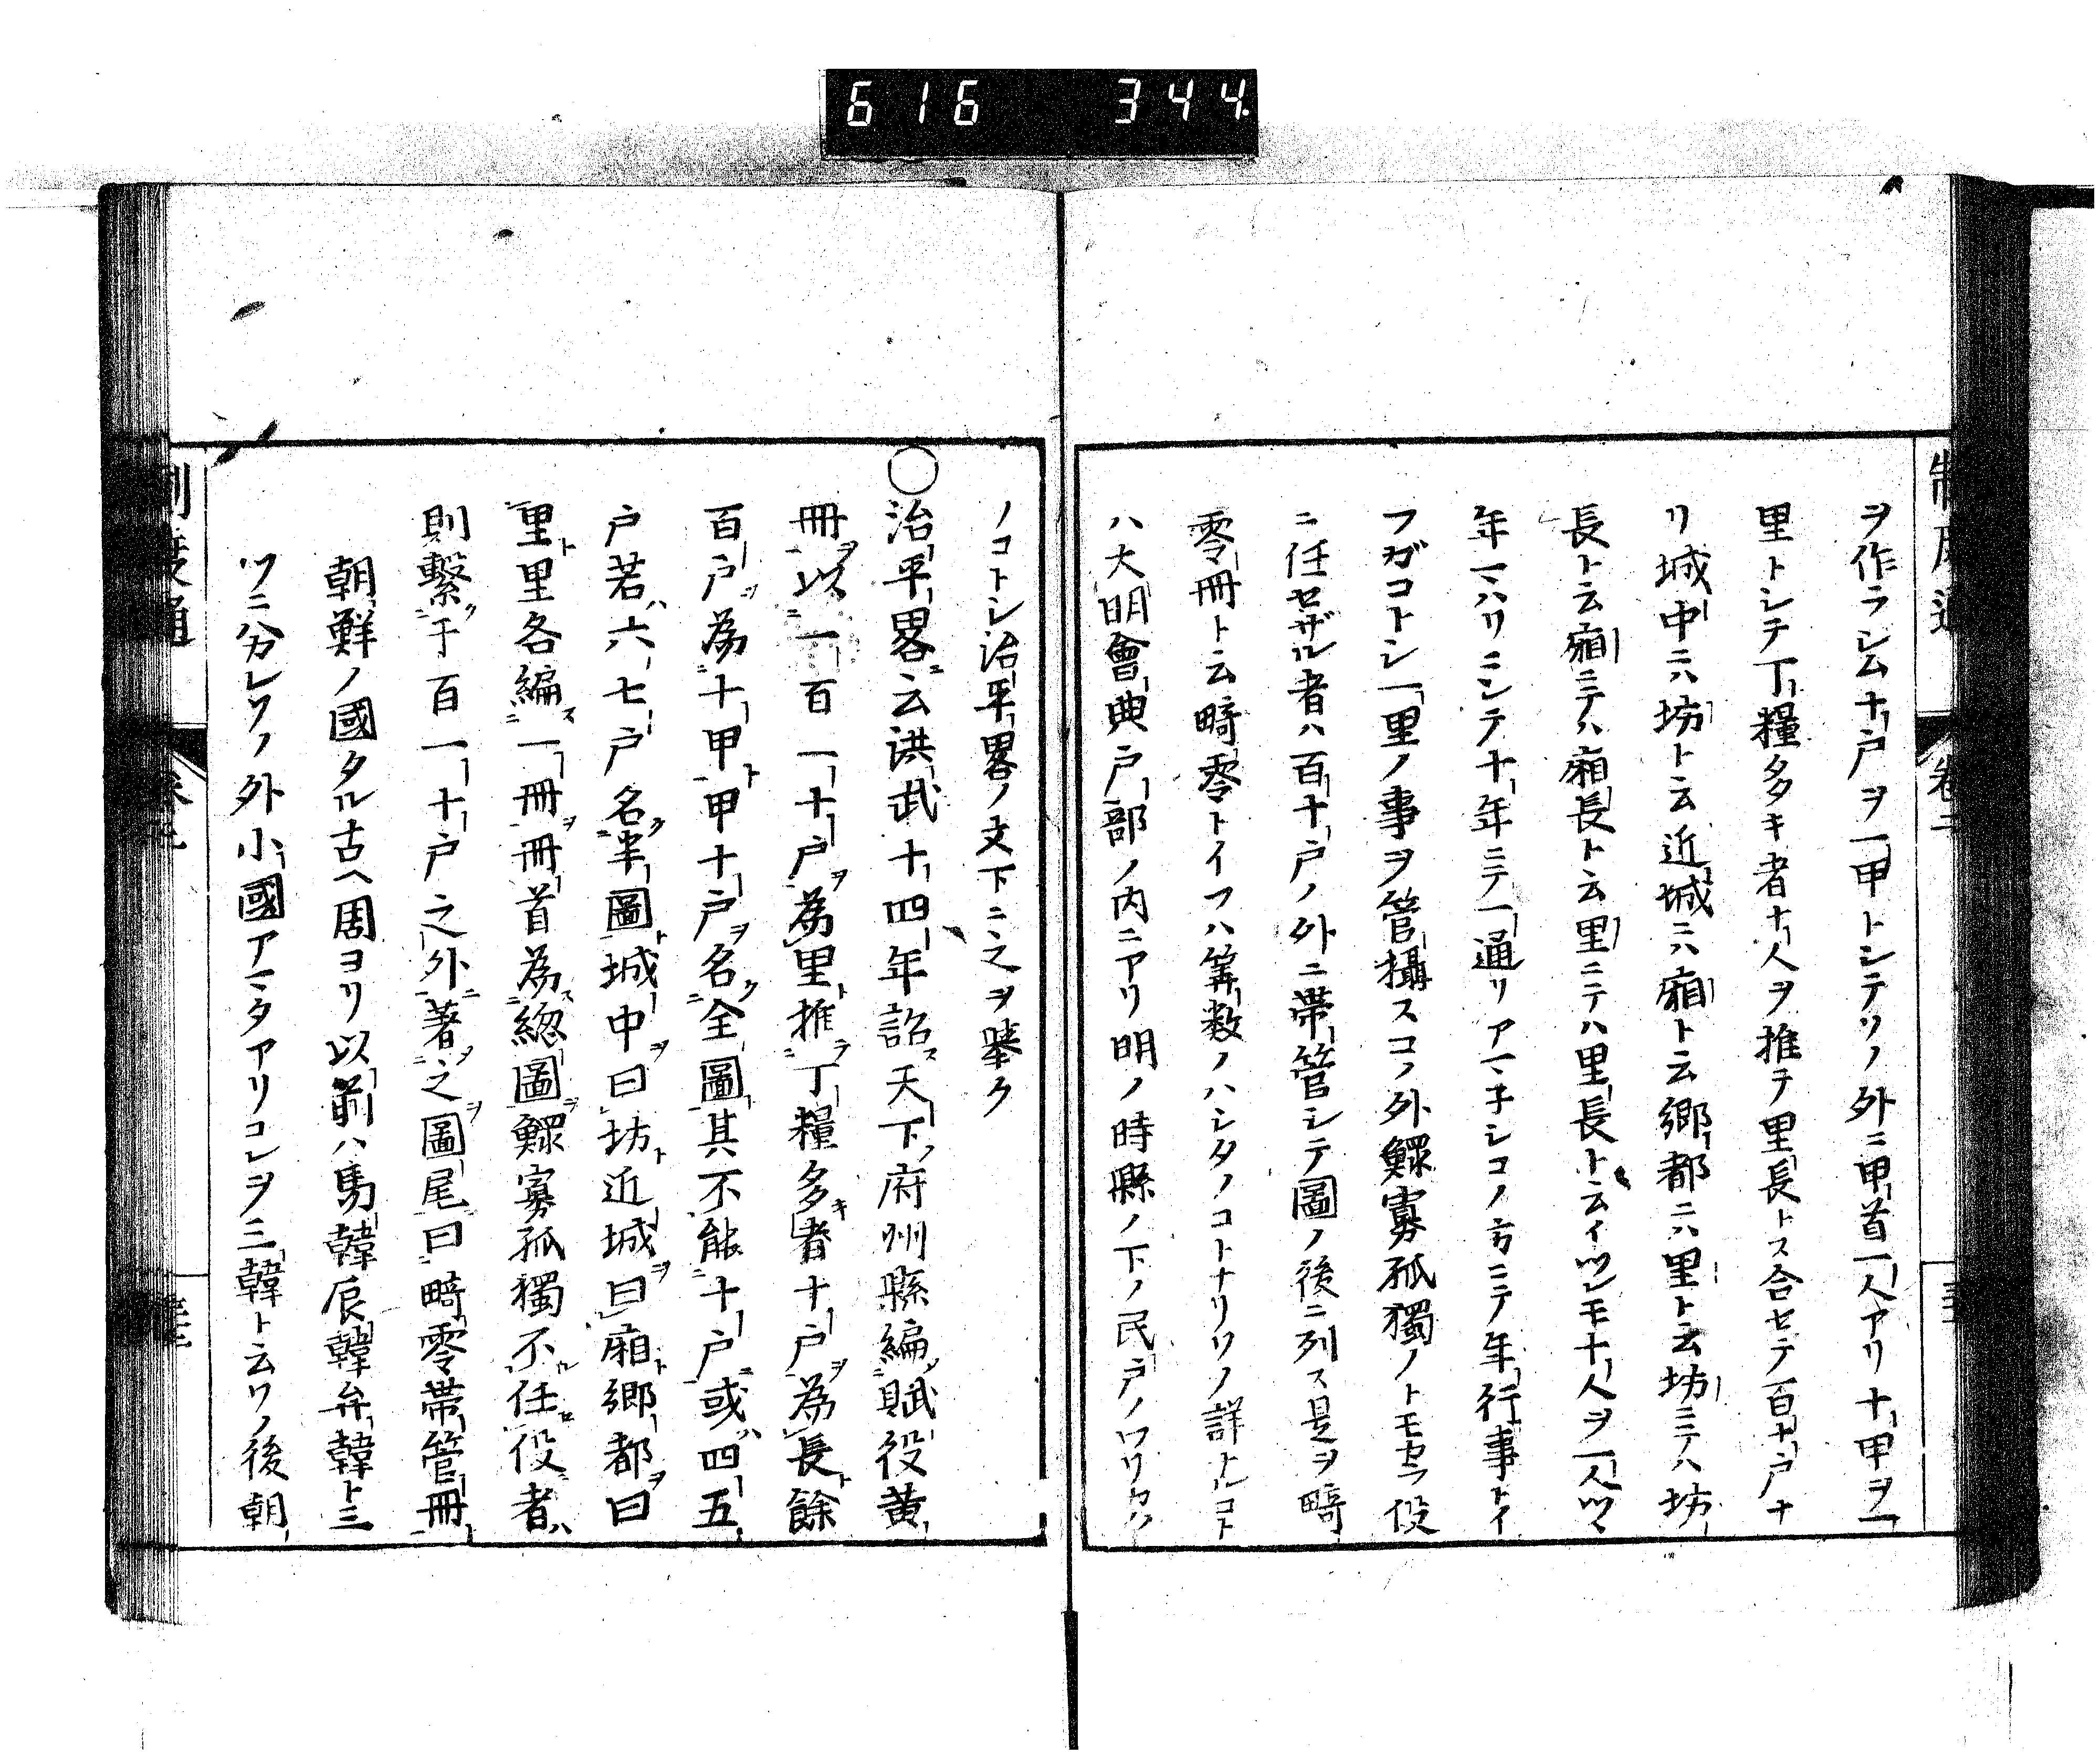 616 344
ヲ作ラシム十戸ヲ一甲トシテソノ外ニ甲首一人アリ十甲ヲ一
里トシテ丁糧多キ者十人ヲ推テ里長トス合セテ一百十戸ナ
リ城中ニハ坊ト云近城ニハ廂ト云郷都ニハ里ト云坊ニテハ坊
長ト云廂ニテハ廂長ト云里ニテハ里長ト云イツレモ十人ヲ一人ツヽ
年マハリニシテ十年ニテ一通リアマネシコノ方ニテ年行事トイ
フガコトシ一里ノ事ヲ管攝スコノ外鰥寡孤獨ノトモカラ役
ニ任セザル者ハ百十戸ノ外ニ帯管シテ圖ノ後ニ列ス是ヲ畸
零冊ト云畸零トイフハ筭数ノハシタノコトナリソノ詳ナルコト
ハ大明會典戸部ノ内ニアリ明ノ時縣ノ下ノ民戸ノワリカタ
ノコトシ治平畧ノ文下ニ之ヲ擧ク
〇治平畧云洪武十四年詔天下府州縣編賦役黄
冊以一百一十戸為里推丁糧多者十戸為長餘
百戸為十甲甲十戸名全圖其不能十戸或四五
戸若六七戸名半圖城中曰坊近城曰廂郷都曰
里里各編一冊冊首為總圖鰥寡孤獨不任役者
則繫于百一十戸之外著之圖尾曰畸零帯管冊
朝鮮ノ國タル古ヘ周ヨリ以前ハ馬韓辰韓弁韓ト三
ツニ分レソノ外小國アマタアリコレヲ三韓ト云ソノ後朝